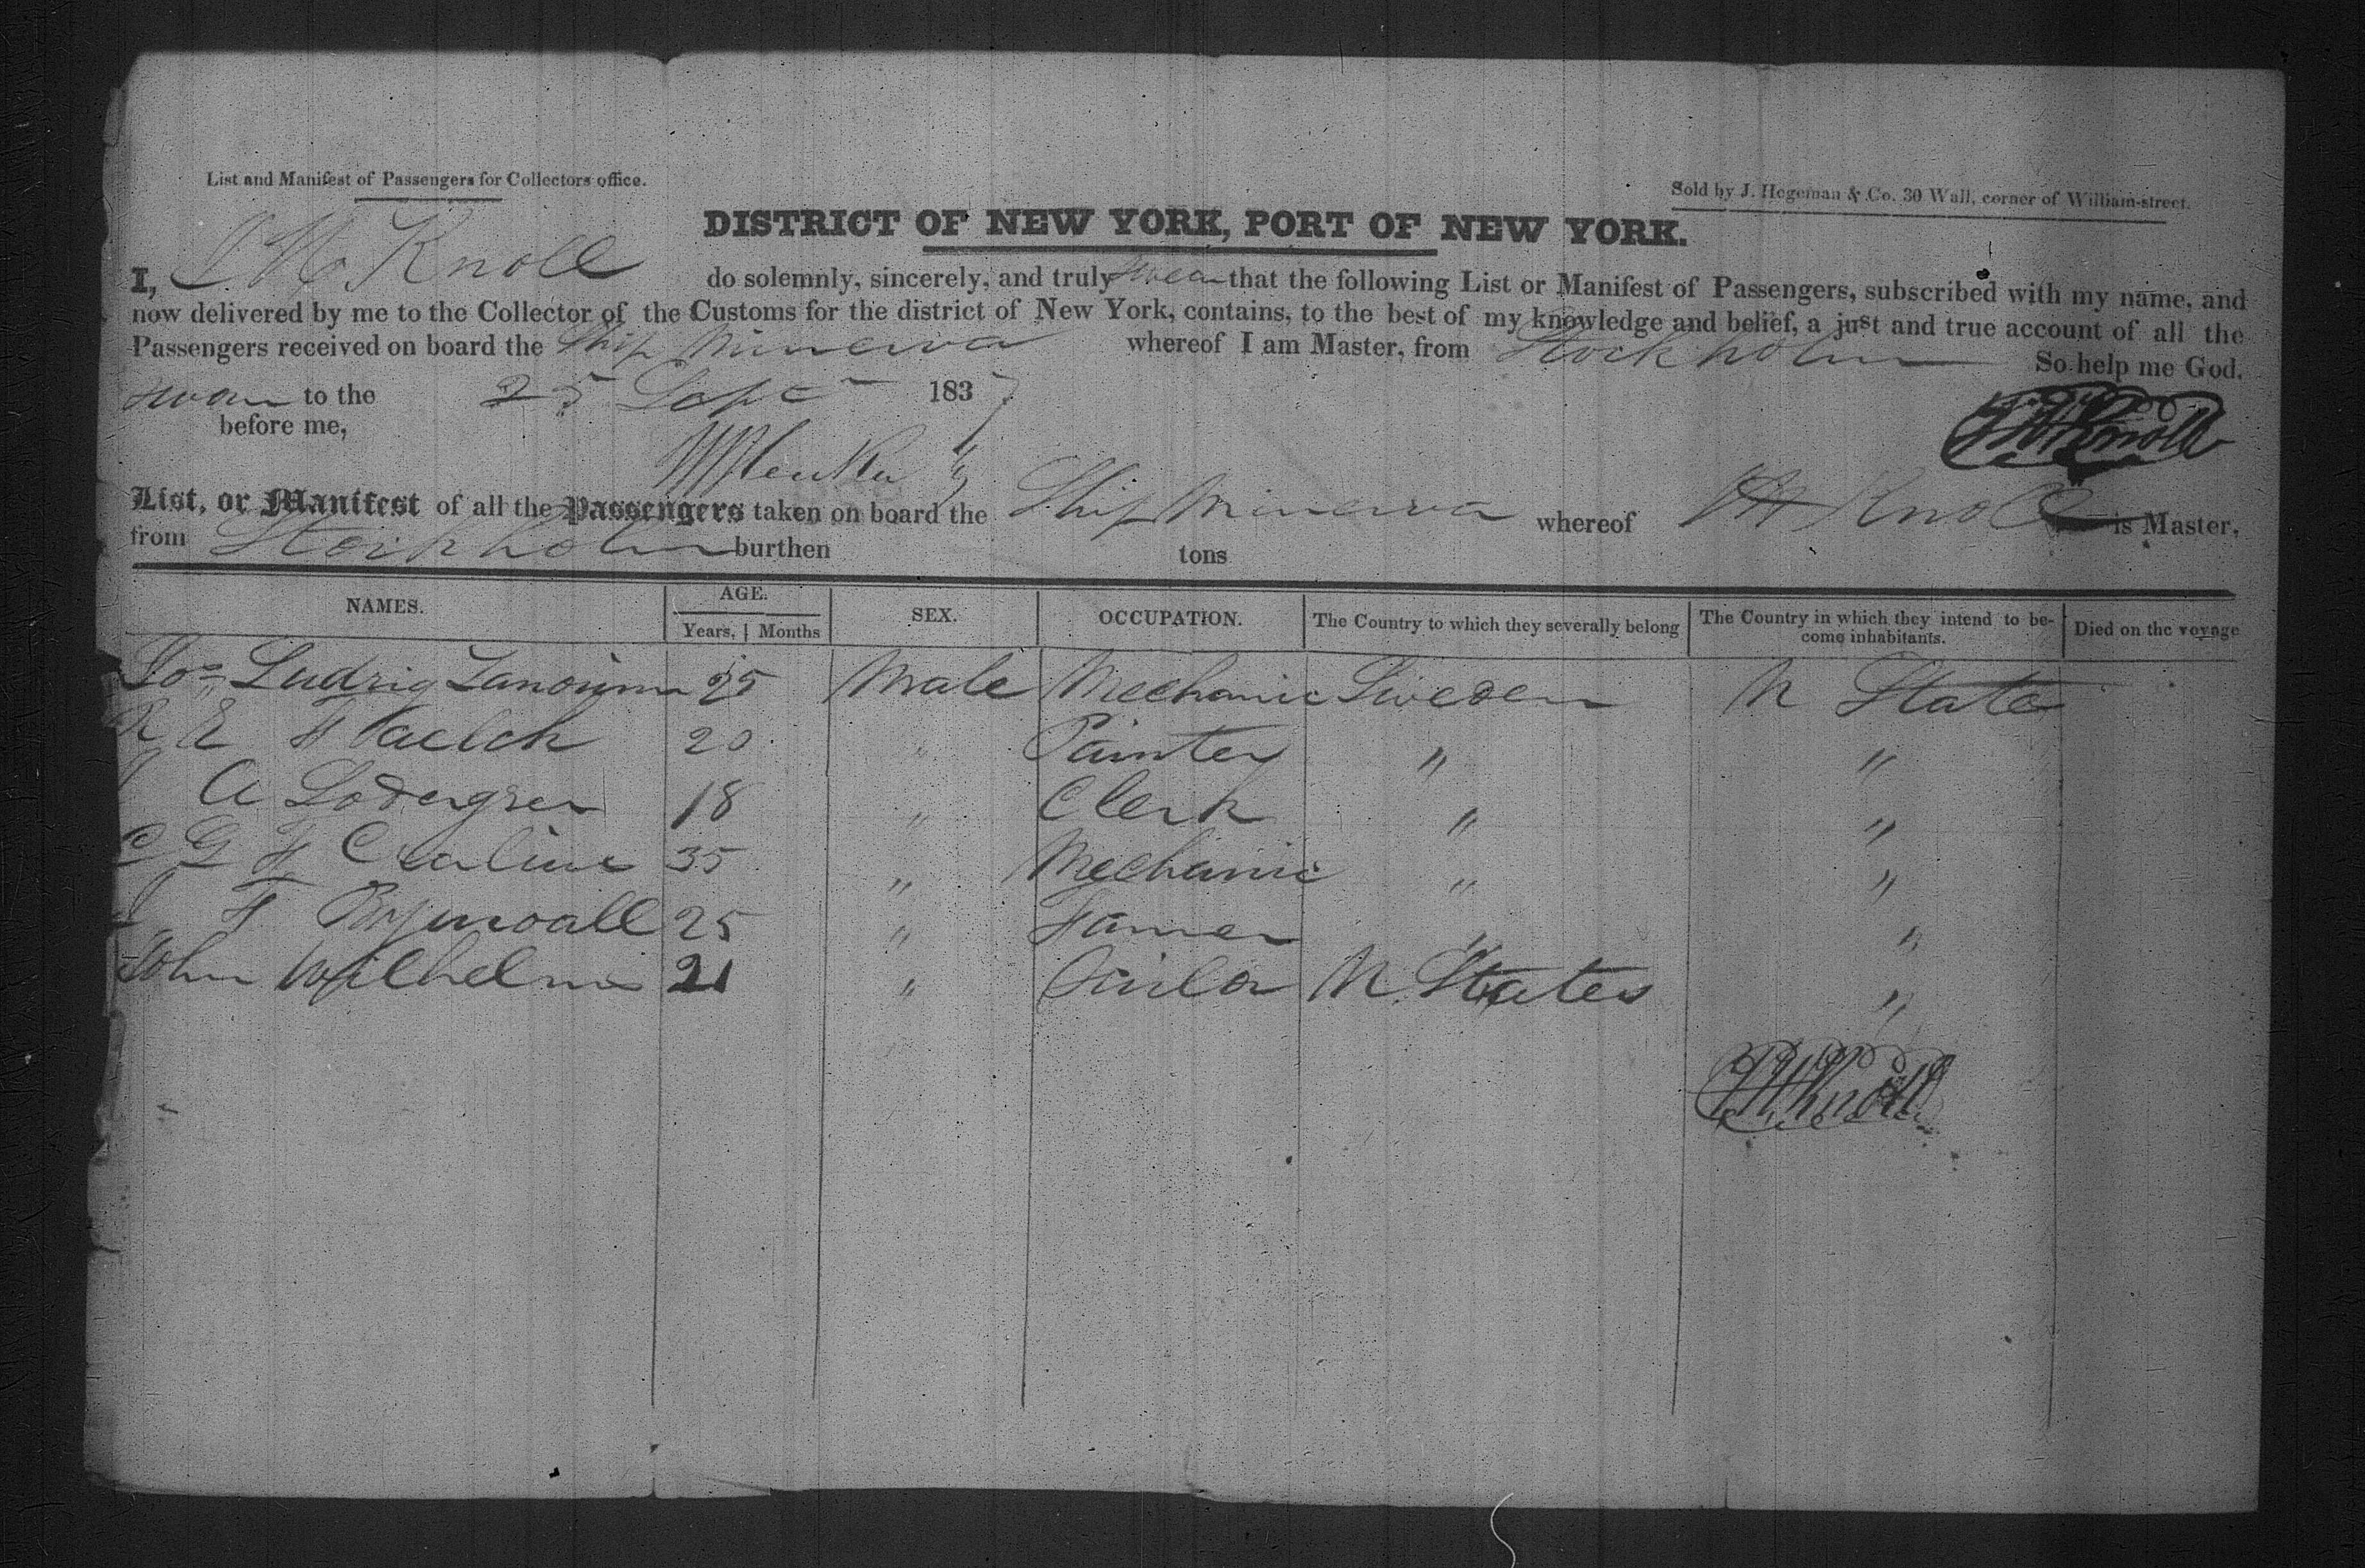 List and Manifest of Passengers for Collectors office.
Sold by J. Hegeman & Co. 30 Wall, corner of William-street.
DISTRICT OF NEW YORK, PORT OF NEW YORK.
I, Knoll do solemnly, sincerely, and truly swear that the following List or Manifest of Passengers, subscribed with my name, and
now delivered by me to the Collector of the Customs for the district of New York, contains, to the best of my knowledge and belief, a just and true account of all the
Passengers received on board the Ship Minerva whereof I am Master, from Stockholm So help me God.
sworn to the 25 Sept 1837
before me,
Knoll
List, or Manifest of all the Passengers taken on board the Ship Minerva whereof Knoll is Master,
from Stockholm burthen tons
NAMES. AGE. SEX. OCCUPATION. The Country to which they severally belong The Country in which they intend to be-come inhabitants. Died on the voyage
Years, Months
Ludvig 25 Male Mechanic Sweden U State
E F 20 " Painter " "
A Lodergren 18 " Clerk " "
C G F 35 " Mechanic " "
F 25 " Farmer " "
John Wilhelms 21 " U. States "
Knoll